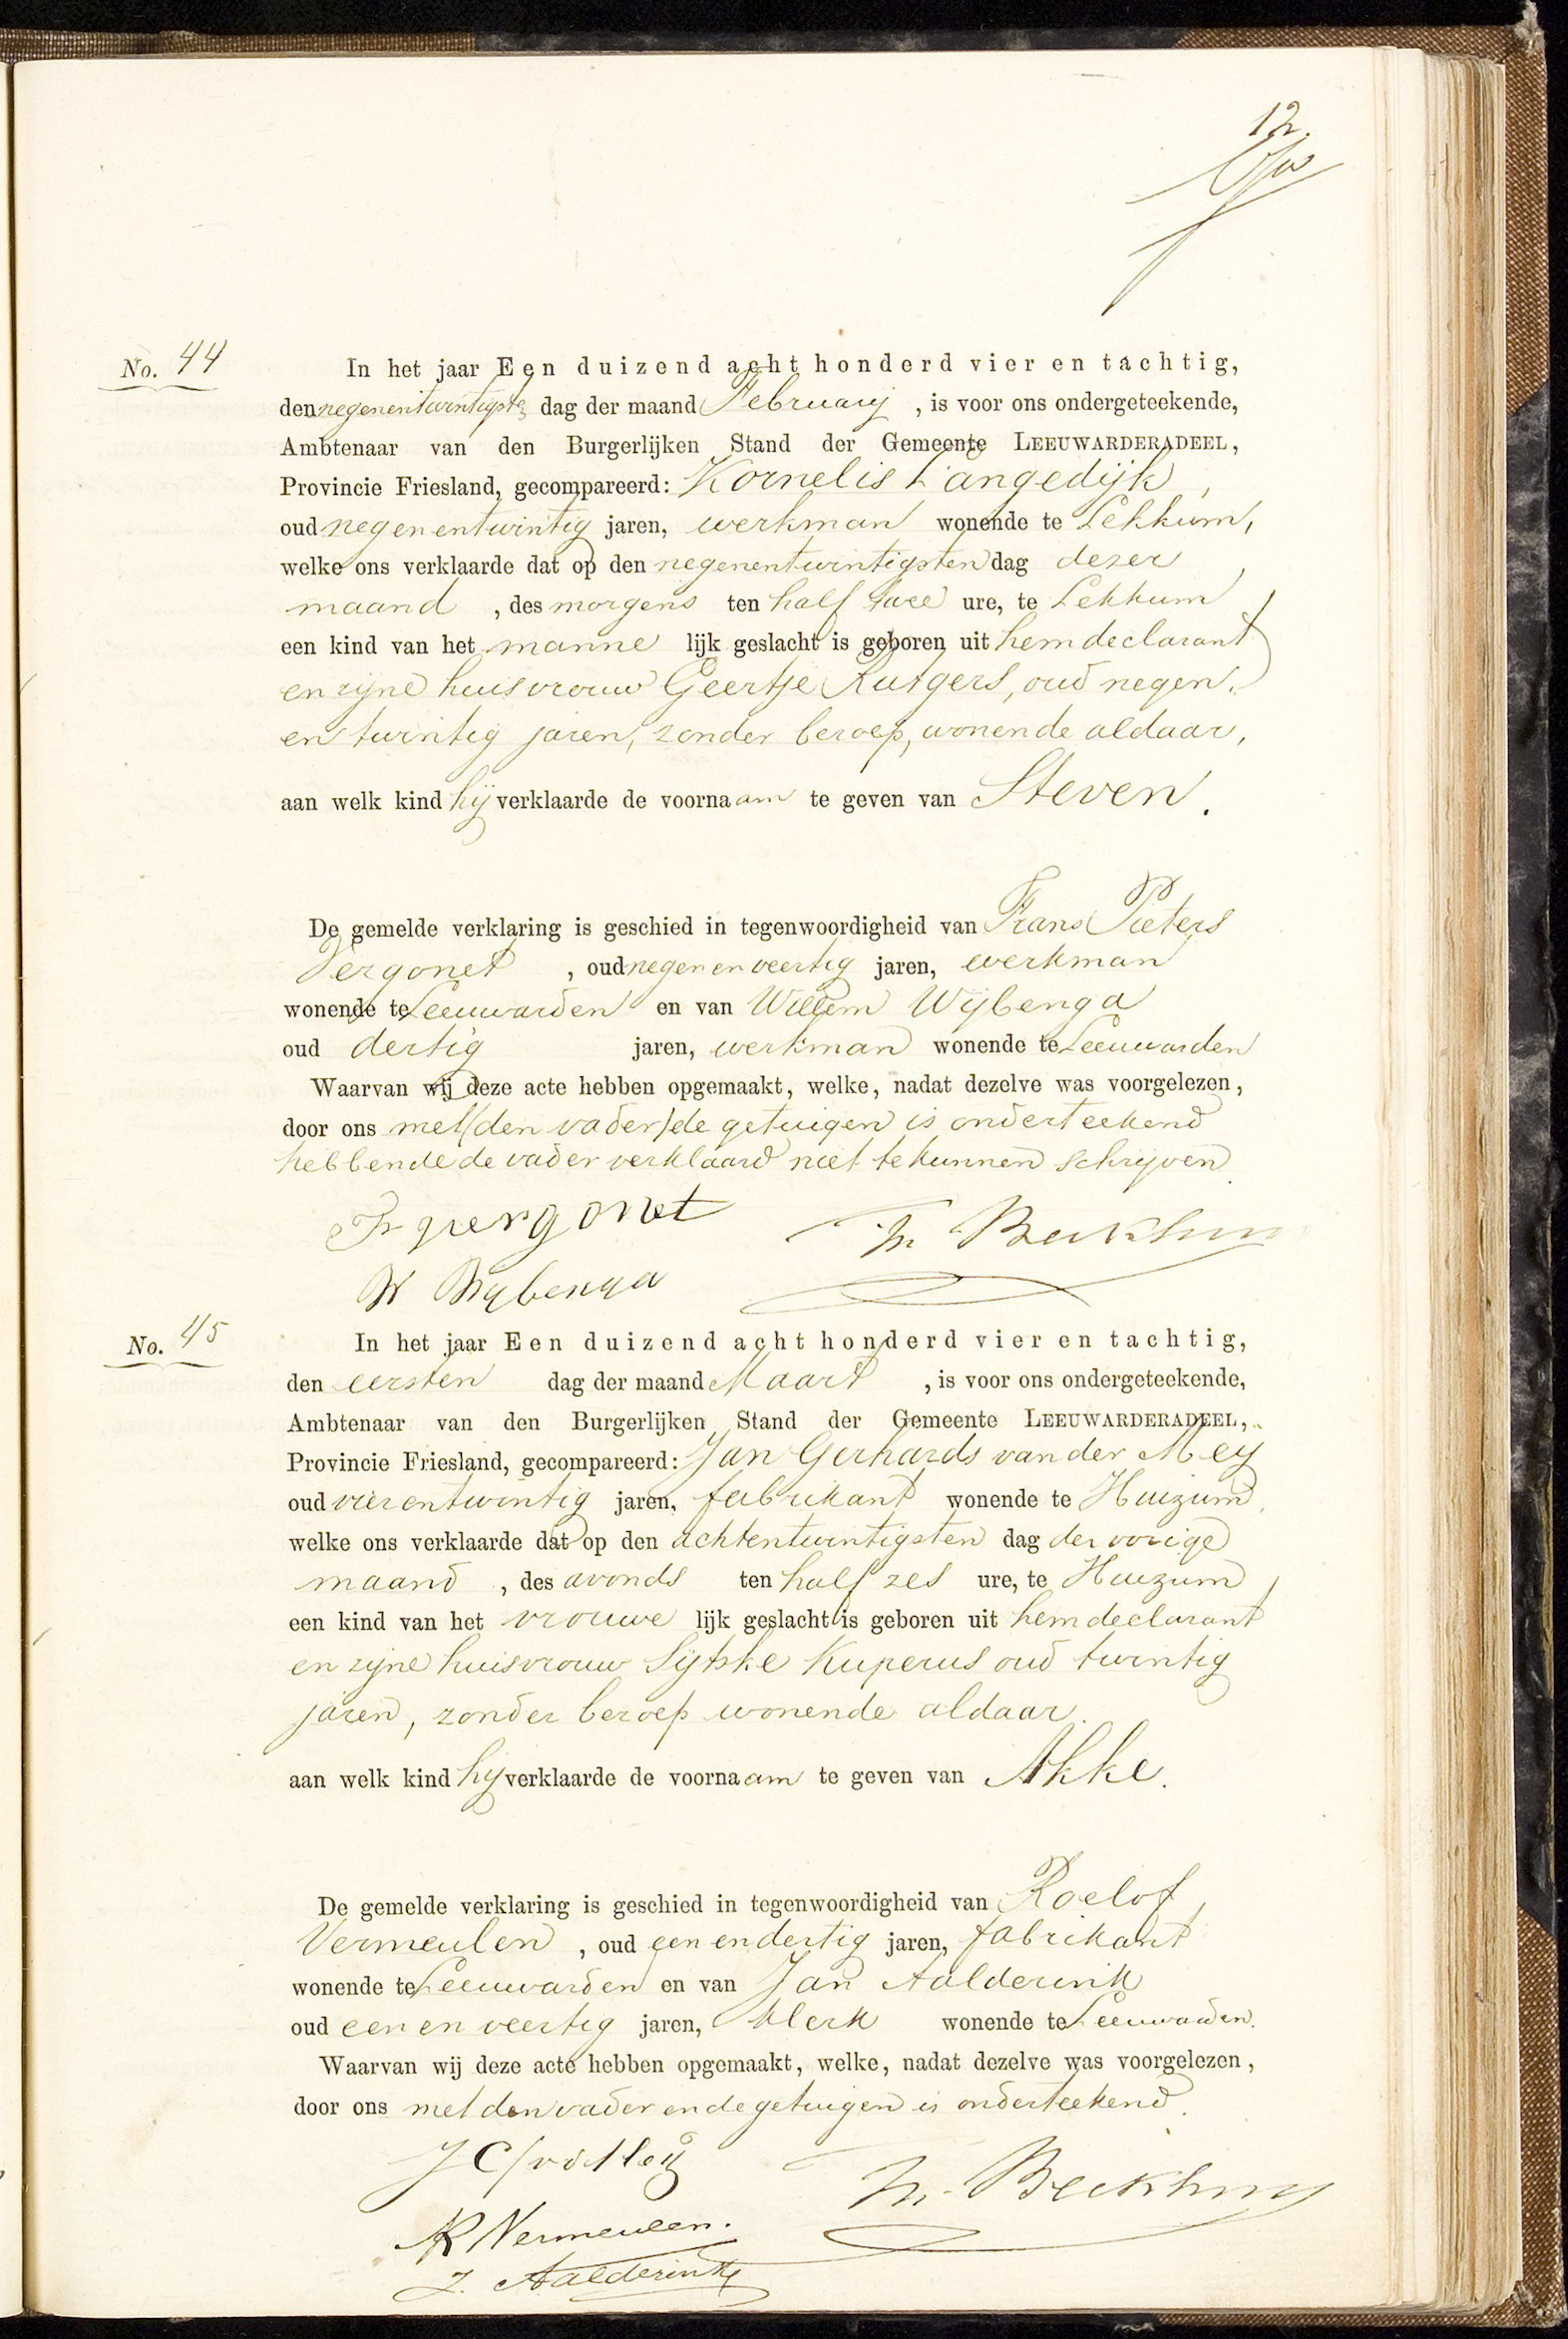 12.
No. 44
In het jaar Een duizend acht honderd vier en tachtig,
den negenentwintigste dag der maand February , is voor ons ondergeteekende,
Ambtenaar van den Burgerlijken Stand der Gemeente LEEUWARDERADEEL,
Provincie Friesland, gecompareerd: Kornelis Langedijk ,
oud negenentwintig jaren, werkman wonende te Lekkum,
welke ons verklaarde dat op den negenentwintigsten dag dezer
maand , des morgens ten half twee ure, te Lekkum ,
een kind van het manne lijk geslacht is geboren uit hem declarant
en zijne huisvrouw Geertje Rutgers, oud negen.
en twintig jaren, zonder beroep, wonende aldaar,
aan welk kind hij verklaarde de voornaam te geven van Steven.
De gemelde verklaring is geschied in tegenwoordigheid van Frans Pieters
Vergonet , oud negen en veertig jaren, werkman
wonende te Leeuwarden en van Willem Wijbenga
oud dertig jaren, werkman wonende te Leeuwarden
Waarvan wij deze acte hebben opgemaakt, welke, nadat dezelve was voorgelezen,
door ons met (den vader) de getuigen is onderteekend
hebbende de vader verklaard niet te kunnen schrijven.
Fr vergonet
W Wybenga
No. 45
In het jaar Een duizend acht honderd vier en tachtig,
den eersten dag der maand Maart , is voor ons ondergeteekende,
Ambtenaar van den Burgerlijken Stand der Gemeente LEEUWARDERADEEL,
Provincie Friesland, gecompareerd: Jan Gerhards van der Mey
oud vierentwintig jaren, fabrikant wonende te Huizum,
welke ons verklaarde dat op den achtentwintigsten dag der vorige
maand , des avonds ten half zes ure, te Huizum ,
een kind van het vrouwe lijk geslacht is geboren uit hem declarant
en zijne huisvrouw Sijtske Kuperus oud twintig
jaren, zonder beroep wonende aldaar.
aan welk kind hij verklaarde de voornaam te geven van Akke.
De gemelde verklaring is geschied in tegenwoordigheid van Roelof
Vermeulen , oud een en dertig jaren, fabrikant
wonende te Leeuwarden en van Jan Aalderink
oud een en veertig jaren, klerk wonende te Leeuwarden.
Waarvan wij deze acte hebben opgemaakt, welke, nadat dezelve was voorgelezen,
door ons met den vader en de getuigen is onderteekend.
R Vermeulen.
J. Aalderink